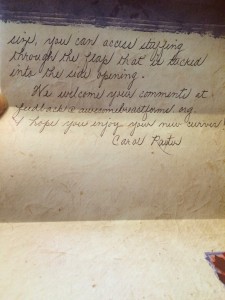 size, you can access stuffing
through the flap that is tucked
into the side opening.
We welcome your comments at
feedback@awesomebreastforms.org
I hope you enjoy your new curves!
Carol